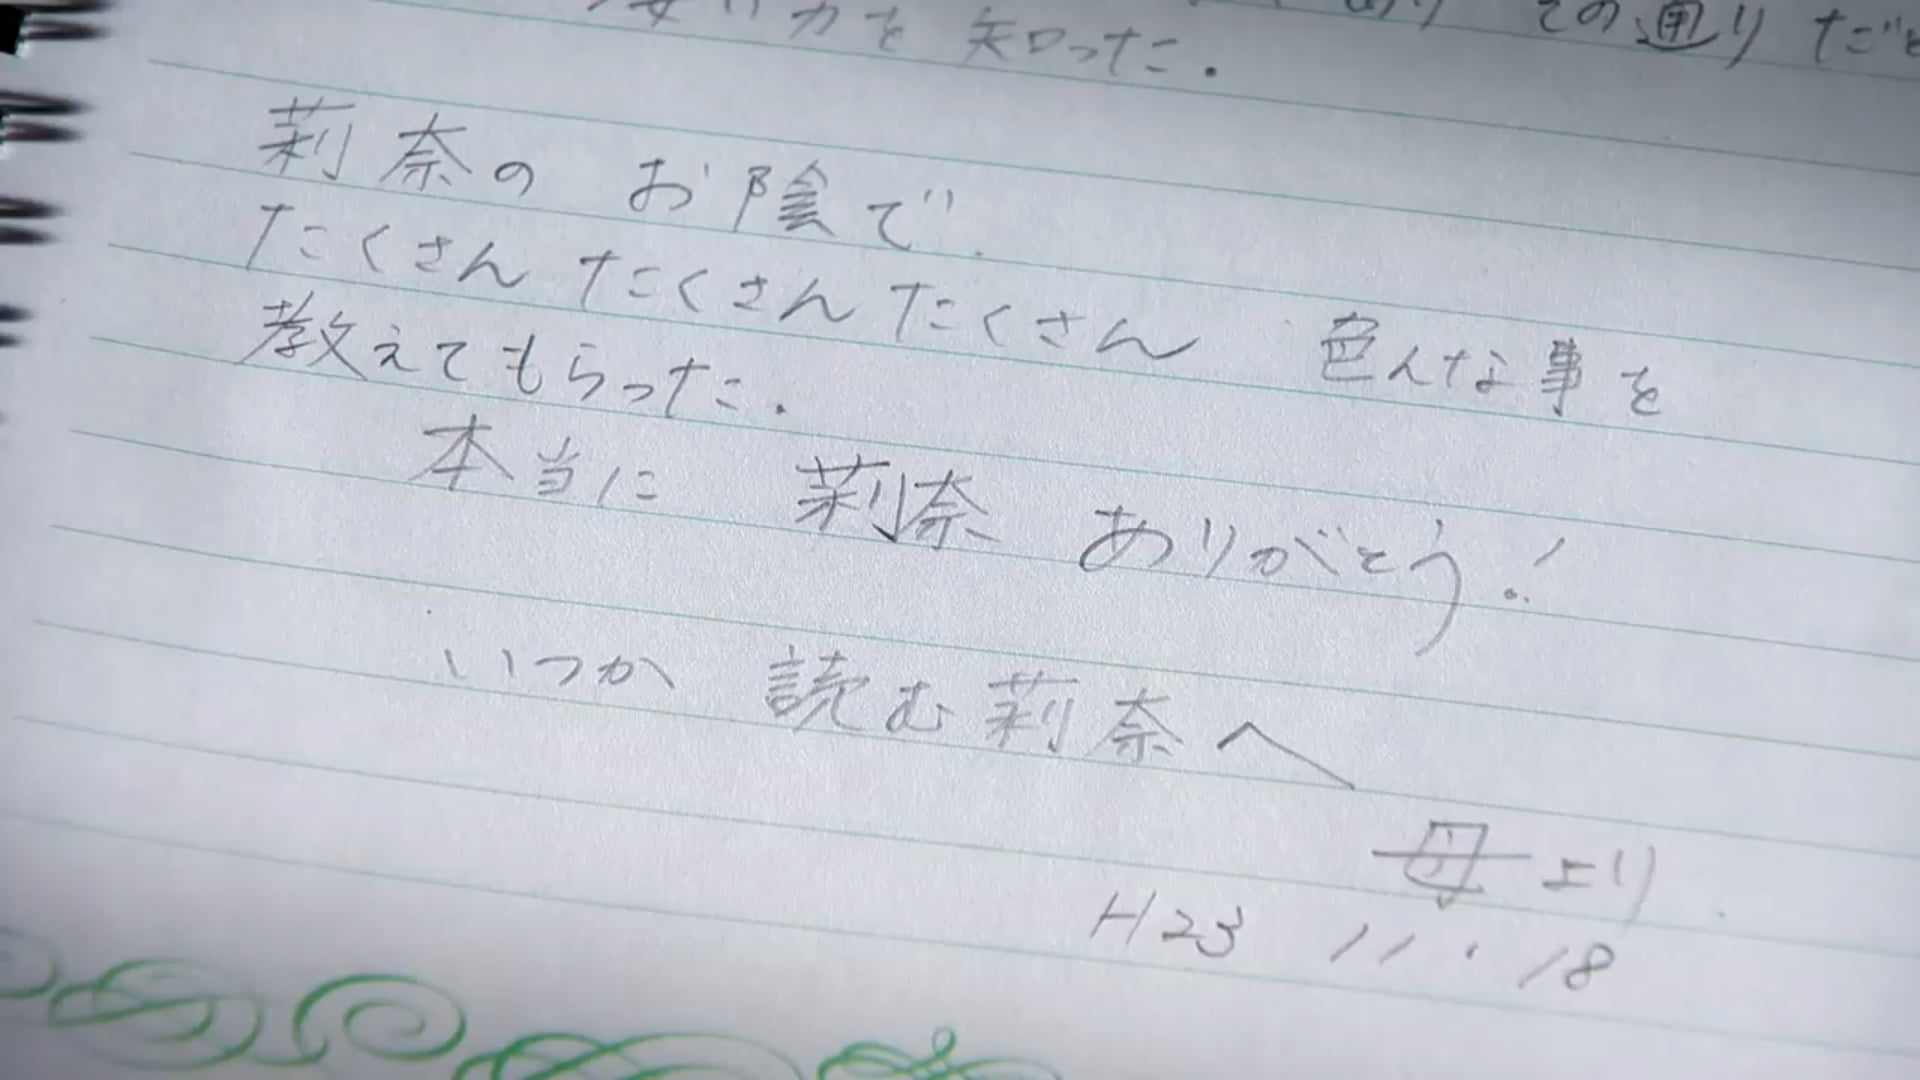 その通りだ
力を知った.
莉奈のお陰で.
たくさんたくさんたくさん 色んな事を
教えてもらった.
本当に 莉奈 ありがとう!
いつか 読む莉奈へ
母より.
H23 11.18